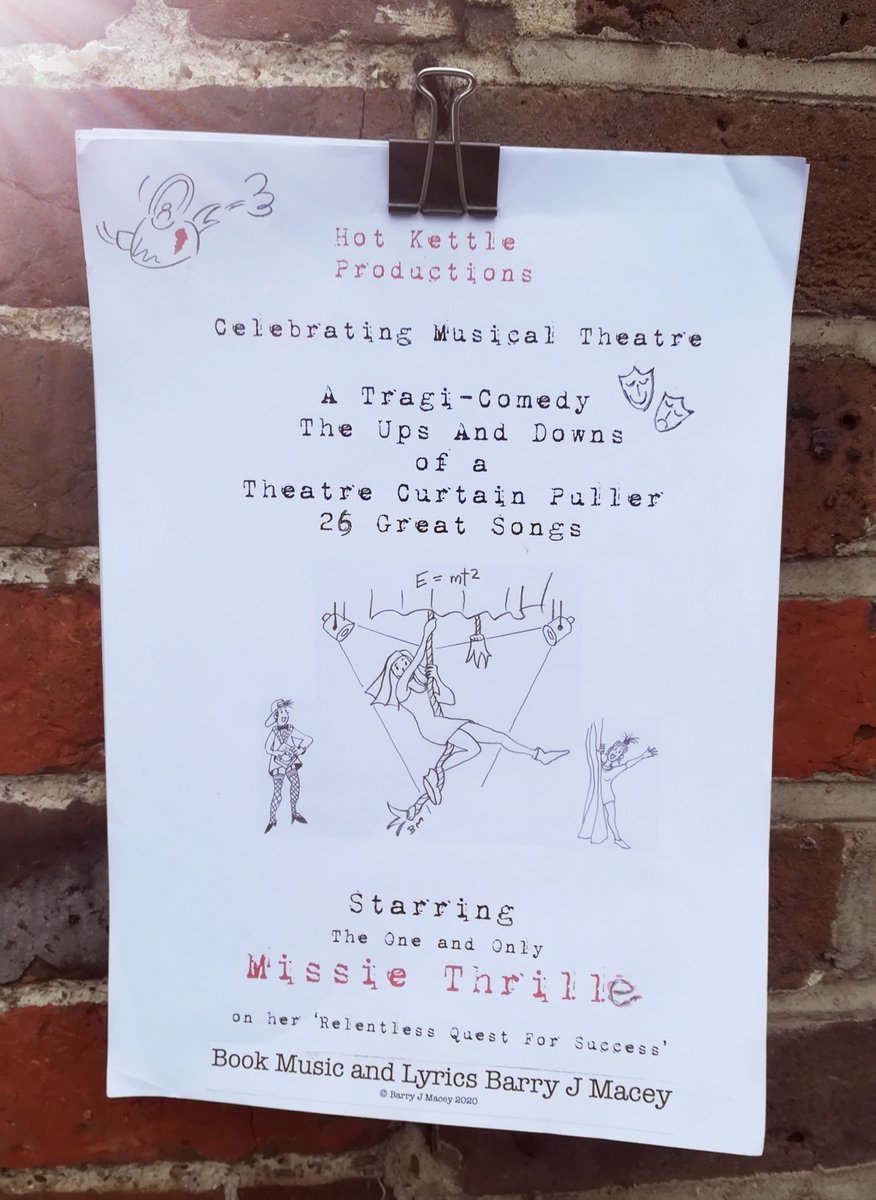 Hot Kettle
Productions
Celebrating Musical Theatre
A Tragi-Comedy
The Ups And Downs
of a
Theatre Curtain Puller
26 Great Songs
E = mt²
BM
Starring
The One and Only
Missie Thrille
on her ‘Relentless Quest For Success’
Book Music and Lyrics Barry J Macey
© Barry J Macey 2020